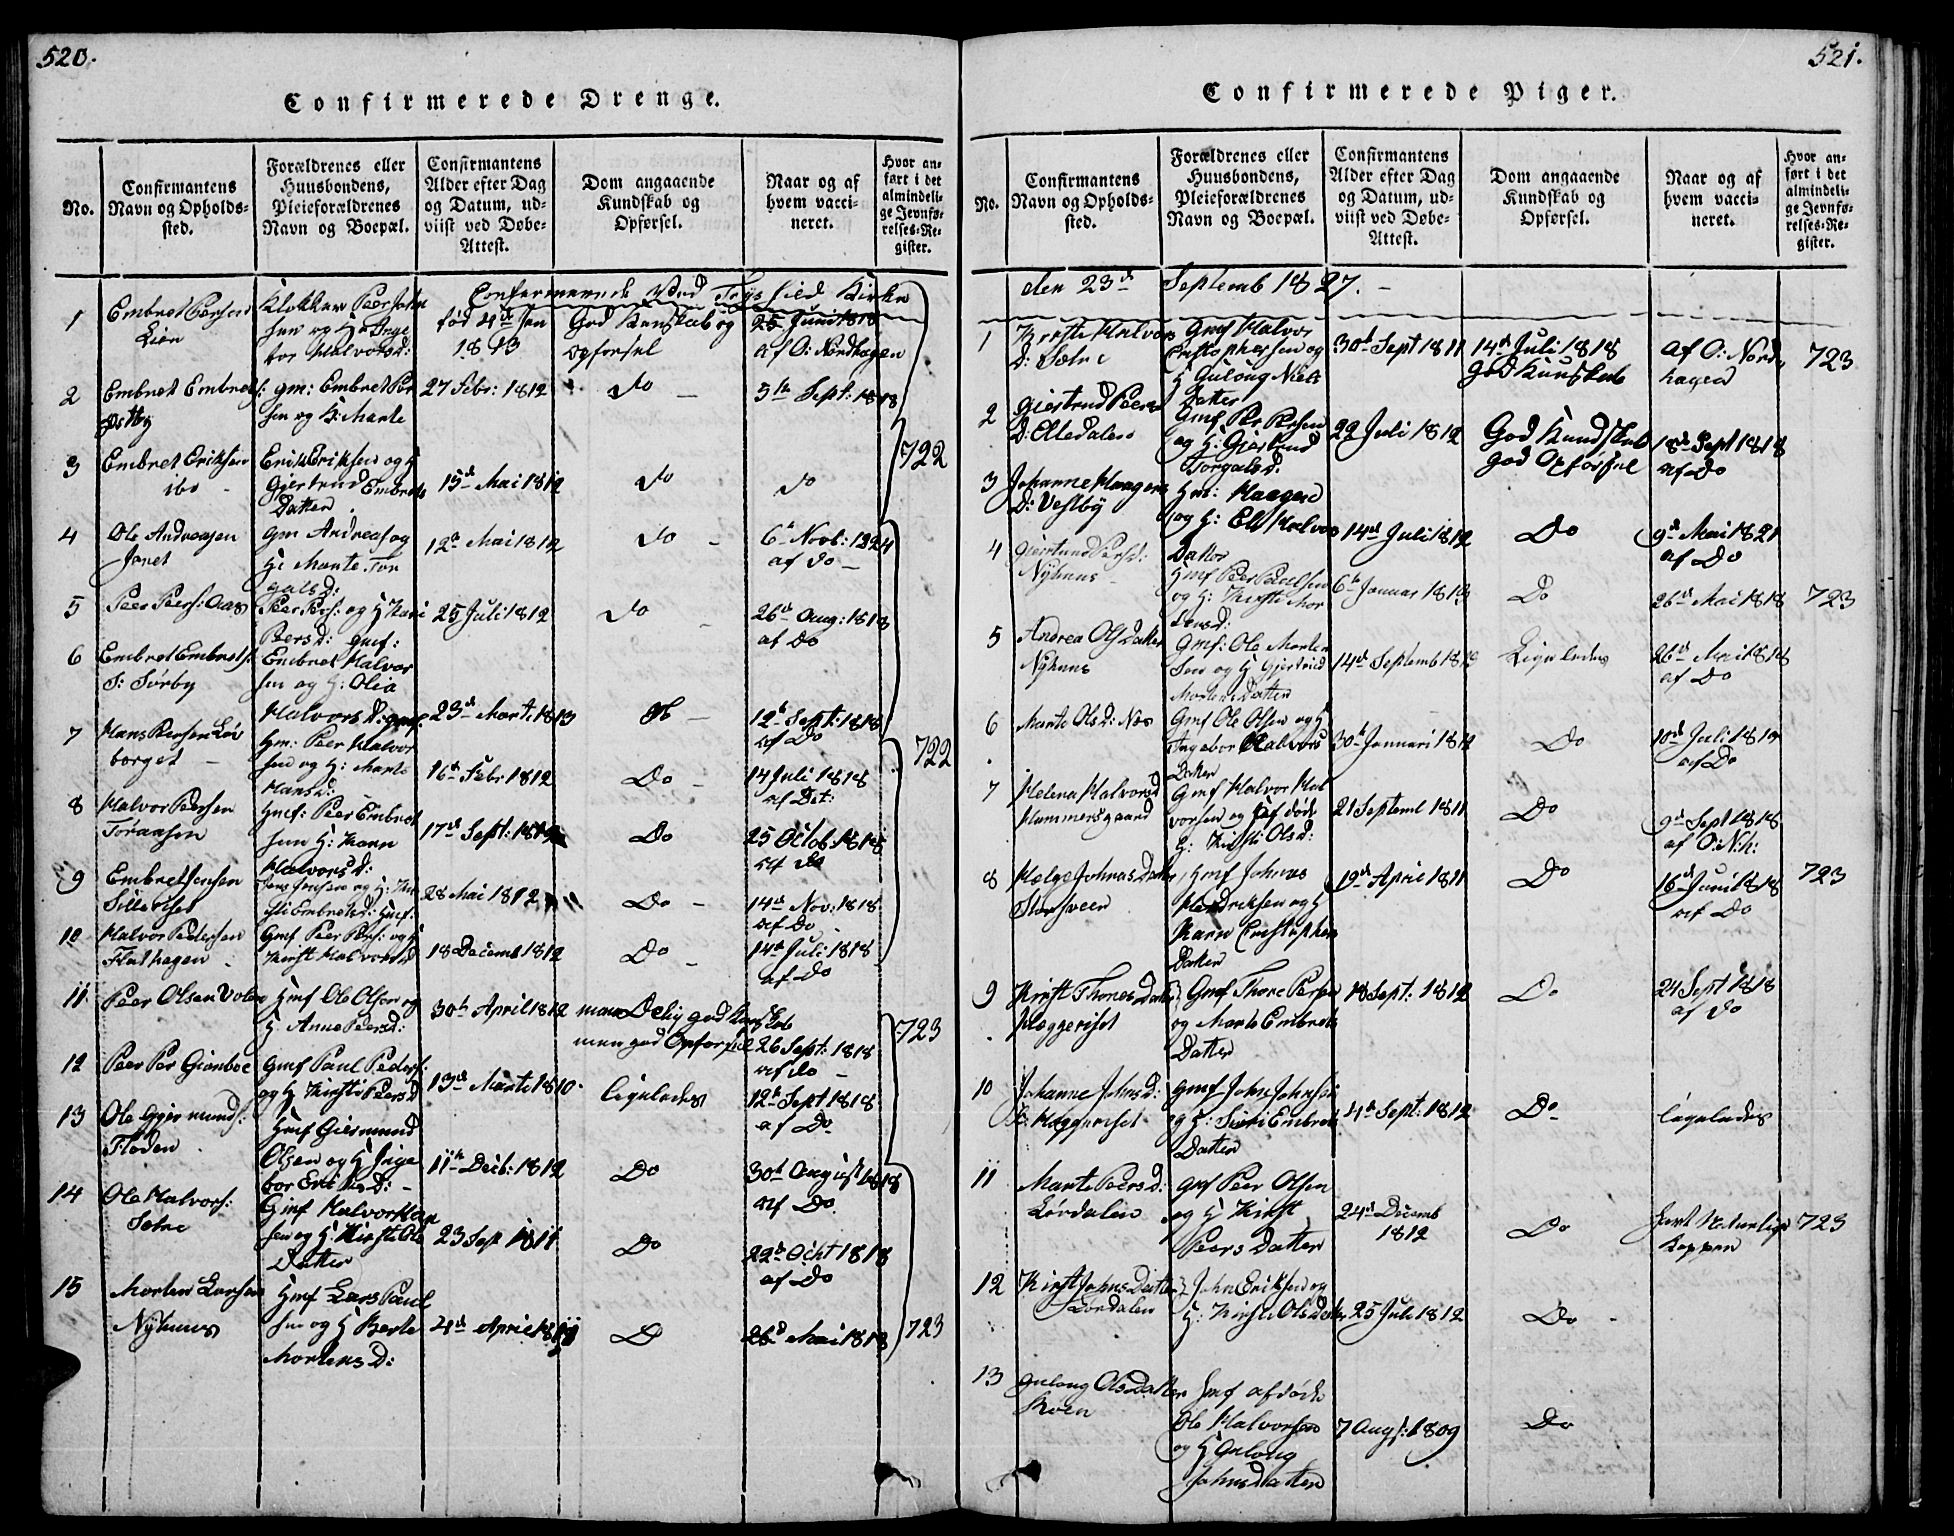 520.
Confirmerede Drenge.
No.
Confirmantens
Navn og Opholds-
sted.
Forældrenes eller
Huusbondens,
Pleieforældrenes
Navn og Boepæl.
Confirmantens
Alder efter Dag
og Datum, ud-
viist ved Døbe-
Attest.
Dom angaaende
Kundskab og
Opførsel.
Naar og af
hvem vacci-
neret.
Hvor an-
ført i det
almindeli-
ge Jevnfø-
relses-Re-
gister.
Confermerede ved Trysild Kirke
1
Embret Persen
Lien
Klokker Peer John
sen og H: Inge
bor Halvorsd:
fød 4de Jan
1813
God Kunskab og
opførsel
25 Juni 1818
af O: Nordhagen
2
Embret Embrets:
Østby
gm: Embret Per
sen og H: Marte
27 Febr: 1812
do
5te Sept: 1818
3
Embret Eriksen
ibd
Erik Eriksen og H
Giertrud Embrets
Datter
15de Mai 1812
do
do
722
4
Ole Andreasen
Jonet
gm Andreas og
H: Marte Tor
galsd:
12te Mai 1812
do
6te Novb: 1824
af do
5
Peer Pers: Aas
Peer Pers: og H Kari
Peersd: gmf:
25 Juli 1812
do
26de Aug: 1818
af do
6
Embret Embrets:
S: Sørby
Embret Halvor
sen og H: Olia
Halvorsd: gmf
23de Marti 1813
do
12te Sept: 1818
af Do
7
Hans Persen Løv
borget
Hm: Peer Halvor
sen og H: Marte
Hansd:
16de Febr 1812
Do
14 Juli 1818
af Dit:
722
8
Halvor Persen
Toraasen
Hmf: Peer Embret
sen H: Karn
Halvorsd:
17de Sept: 1812
Do
25 Octob 1818
af do
9
Embret Jensen
Silleviset
Jens Jensen og H: Kir
sti Embretsd: Hmf:
28 Mai 1812
Do
14de Nov: 1818
af Do
10
Halvor Pedersen
Flathagen
Gmf Peer Pers: og H
Kirst Halvorsd
18 Decemb 1812
Do
14de Juli 1818
af do
11
Peer Olsen Volen
Hmf Ole Olsen og
H Anne Peersd:
30te April 1812
maaDelig god Kunskab
men god Opførsel
26 Sept: 1818
af do
723
12
Peer Per Grønboe
Gmf Paul Peders:
og H Kirsti Peersd
13de Marti 1810
ligeledes
12te Sept 1818
af Do
13
Ole Gjermunds:
Floden
Hmf Giermund
Olsen og H Inge
bor Eriksd:
11te Decb: 1812
Do
30te August 1818
af Do
14
Ole Halvors:
Sætre
Gmf Halvor Hal
sen og H: Kirsti Ole
Datter
23 Sep 1811
Do
22de Ocht 1818
af Do
15
Morten Larsen
Nyhuus
Hmf Lars Paul
sen og H Berte
Mortensd:
4de April 1811
D
26d Mai 1818
723
521.
Confirmerede Piger.
No.
Confirmantens
Navn og Opholds-
sted.
Forældrenes eller
Huusbondens,
Pleieforældrenes
Navn og Boepæl.
Confirmantens
Alder efter Dag
og Datum, ud-
viist ved Døbe-
Attest.
Dom angaaende
Kundskab og
Opførsel.
Naar og af
hvem vacci-
neret.
Hvor an-
ført i det
almindeli-
ge Jevnfø-
relses-Re-
gister.
den 23de Septemb 1827.
1
Kirsti Halvors
D: Sætre
Gmf Halvor
Cristophersen og
H Gulong Niels
Datter
30te Sept 1811
14de Juli 1818
God Kunskab
af O: Nord
hagen
723
2
Giertrud Peers
D: Elledalen
Gmf Per Persen
og H: Giertrud
Torgalsd:
22 Juli 1812
God Kundskab
god Opførsel
18de Sept 1818
af do
3
Johanne Haagens
D: Vestby
Hm: Haagen
og H: Eli Halvors
Datter
14de Juli 1812
Do
9de Mai 1821
af Do
4
Giertrud Persd:
Nyhuus
Hmf Peer Paulsen
og H: Kirsti Mor
tensd:
6te Januar 1813
Do
26de Mai 1818
723
5
Andrea Ols Datter
Nyhuus
Gmf: Ole Morten
sen og H Gjertrud
Mortens Datter
14de Septemb 1812
Ligeledes
26de Mai 1818
af Do
6
Marte Olsd: Næs
Gmf Ole Olsen og H
Ingebor Halvors
Datter
30te Januari 1812
Do
10de Juli 1819
af Do
7
Helena Halvorsd
Hammersgaard
Gmf Halvor Hal
vorsen og Hs f døde
H: Kirsti Olsd:
21 Septemb 1811
Do
9de Sept 1818
af O: N: h:
8
Helge Johnas Datter
Storsveen
Hmf Johnas
Hendriksen og H
Karn Cristophers
Datter
19de April 1811
Do
16de Juni 1818
af Do
723
9
Kirst Thores Datter
Hæggeriset
Gmf Thore Persen
og Marte Embrets
Datter
18 Sept: 1812
Do
24 Sept 1818
af do
10
Johanne Johnsd:
Hæggeriset
gmf John Johnsen
og H: Siøri Embrets
Datter
4de Sept: 1812
Do
ligeledes
11
Marte Peersd:
Lørdalen
gmf Peer Olsen
og H Kirst
Peers Datter
24de Decemb
1812
Do
havt Naturlige
Kopper
723
12
Kirst Johns Datter
Lørdalen
John Eriksen og
H: Kirsti Ols Datter
25 Juli 1812
Do
13
Gulong Ols Datter
Moen
Hmf afdøde
Ole Halvorsen
og H Gulong
Johnsdatter
7 Augs: 1809
Do